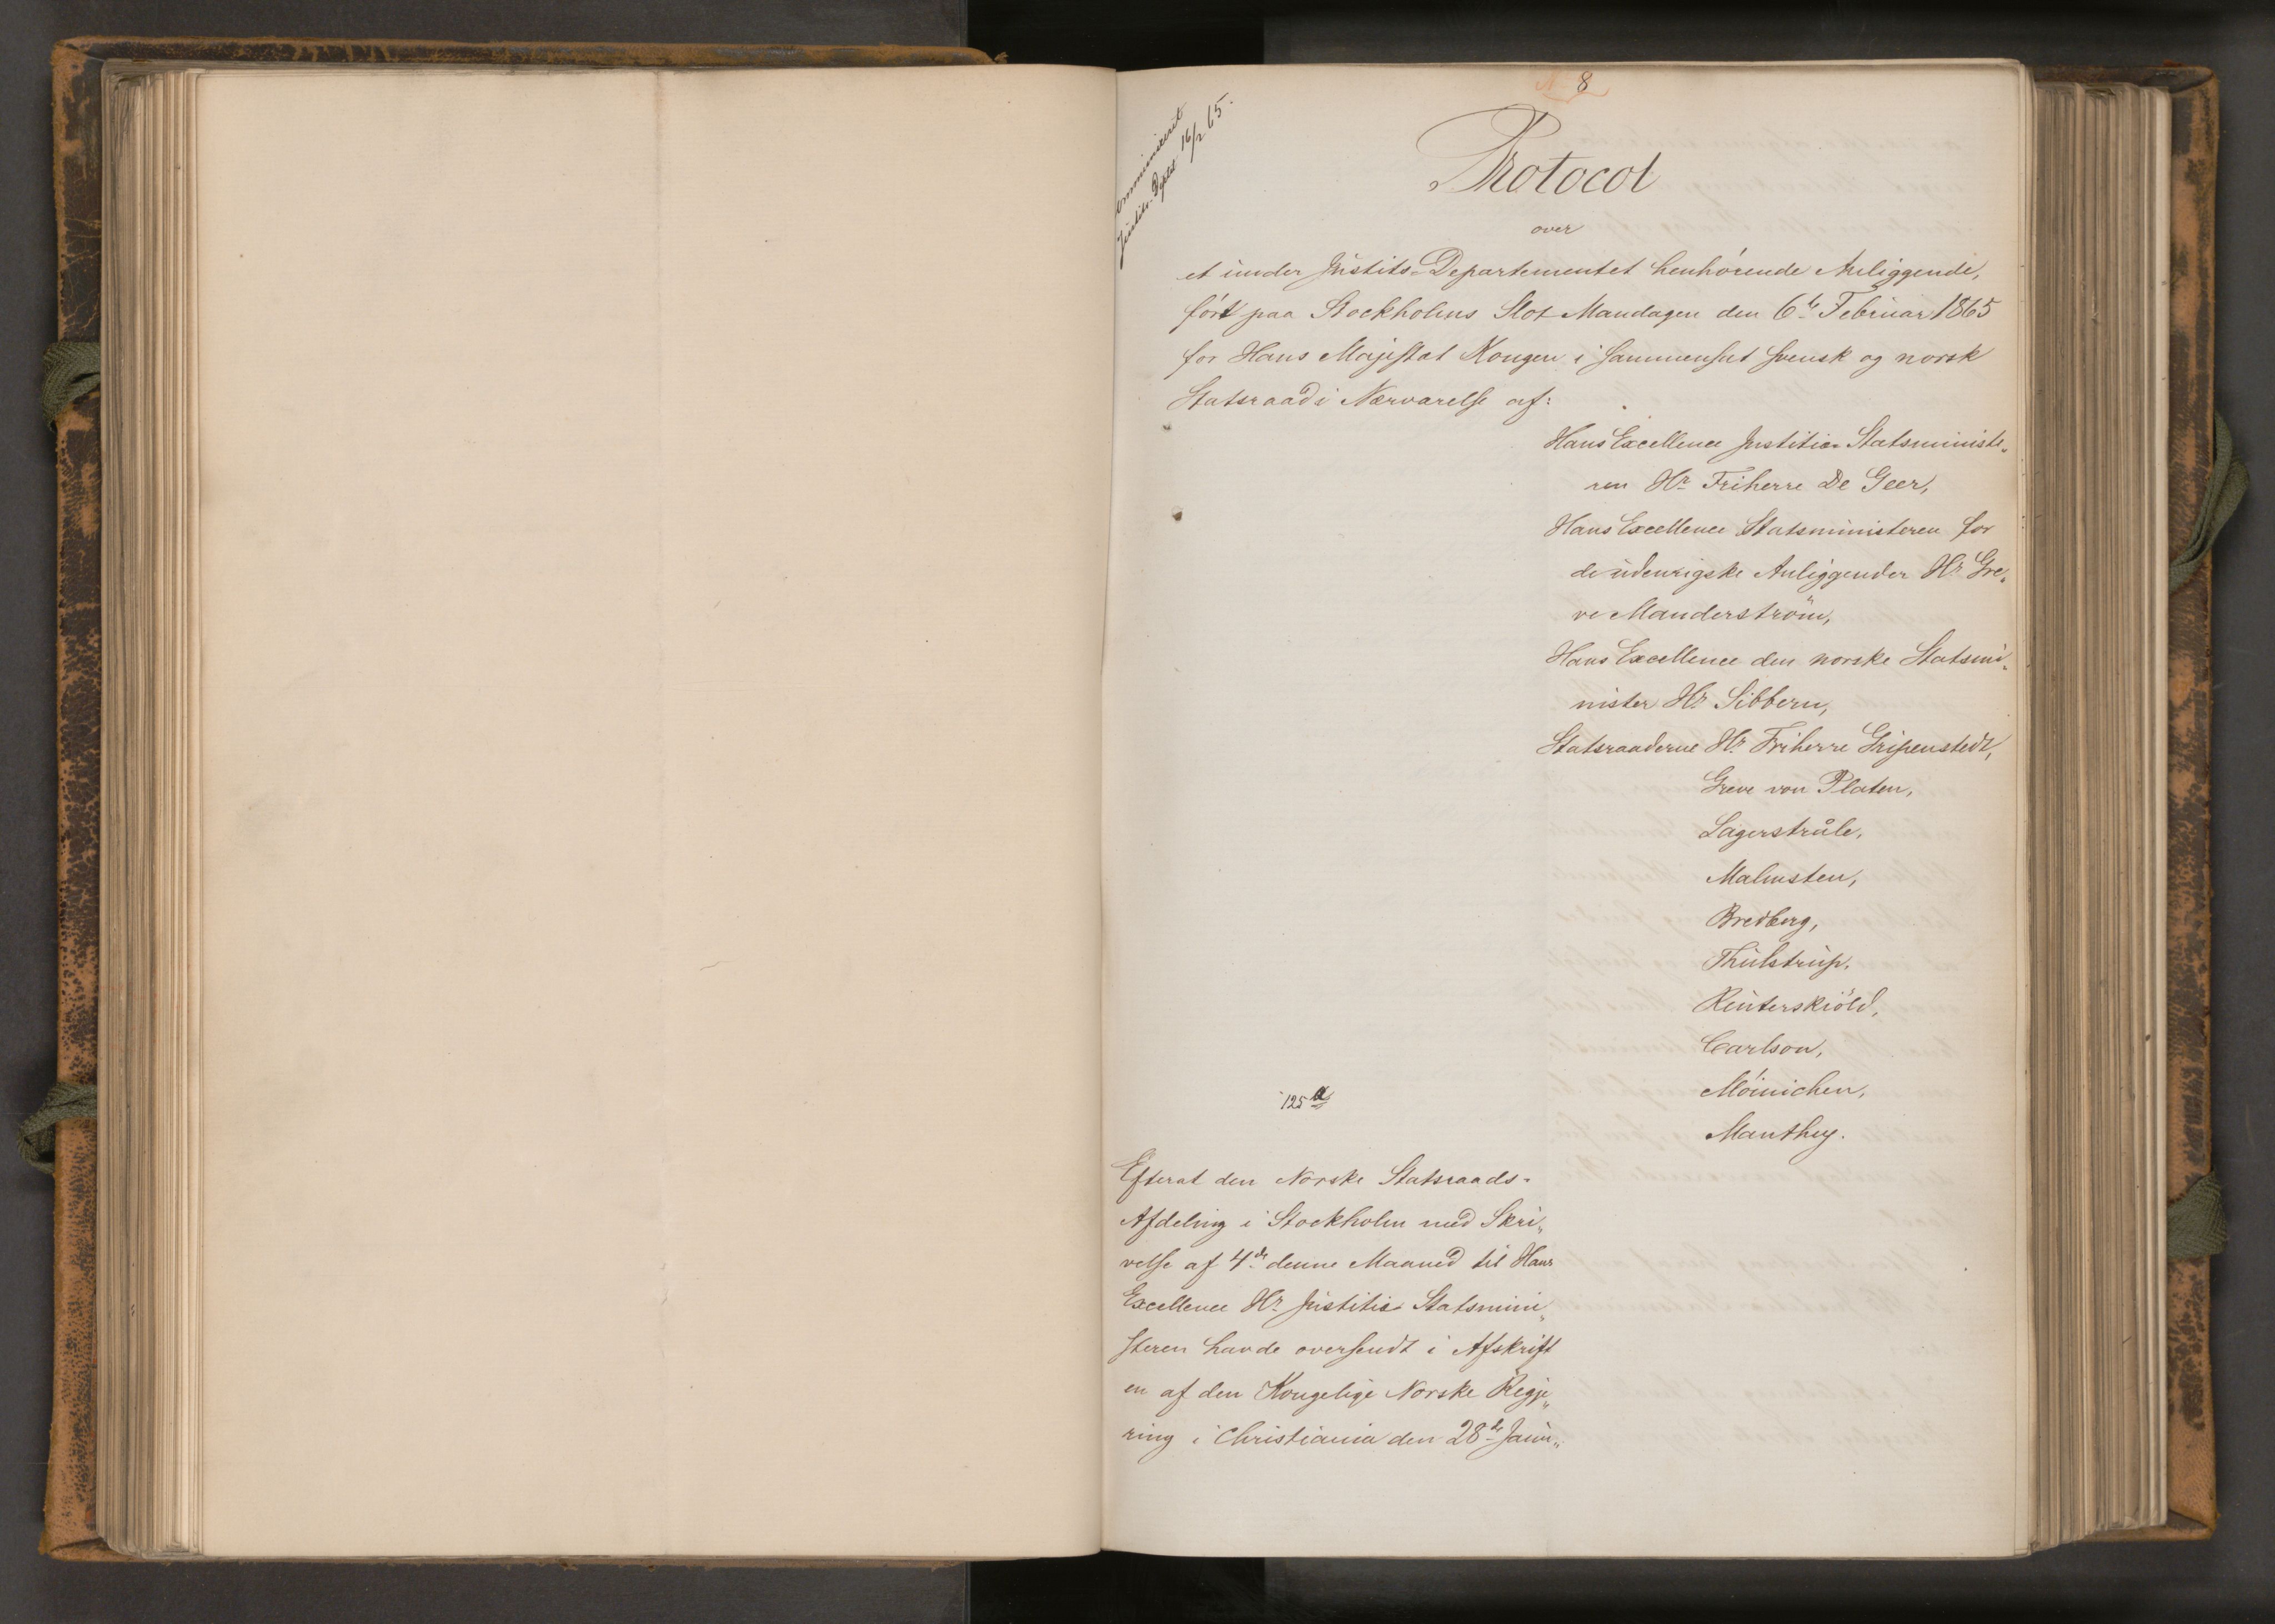 N 8
Communiceret
Justits-Deptet 16/2 65.
Protocol
over
et under Justits-Departementet henhørende Anliggende,
ført paa Stockholms Slot Mandagen den 6te Februar 1865
for Hans Majestæt Kongen i sammensat svensk og norsk
Statsraad i Nærværelse af:
Hans Excellence Justitiæ-Statsministe„
ren Hr Friherre De Geer,
Hans Excellence Statsministeren for
de udenrigske Anliggender Hr Gre„
ve Manderström,
Hans Excellence den norske Statsmi„
nister Hr Sibbern,
Statsraaderne Hr Friherre Gripenstedt,
Greve von Platen,
Lagerstråle,
Malmsten,
Bredberg,
Thulstrup,
Reuterskiöld,
Carlson,
Móinichen,
Manthey.
125 a
Efterat den Norske Statsraads-
Afdeling i Stockholm med Skri„
velse af 4de denne Maaned til Hans
Excellence Hr Justitiæ Statsmini„
steren havde oversendt i Afskrift
en af den Kongelige Norske Regje„
ring i Christiania den 28de Janu„